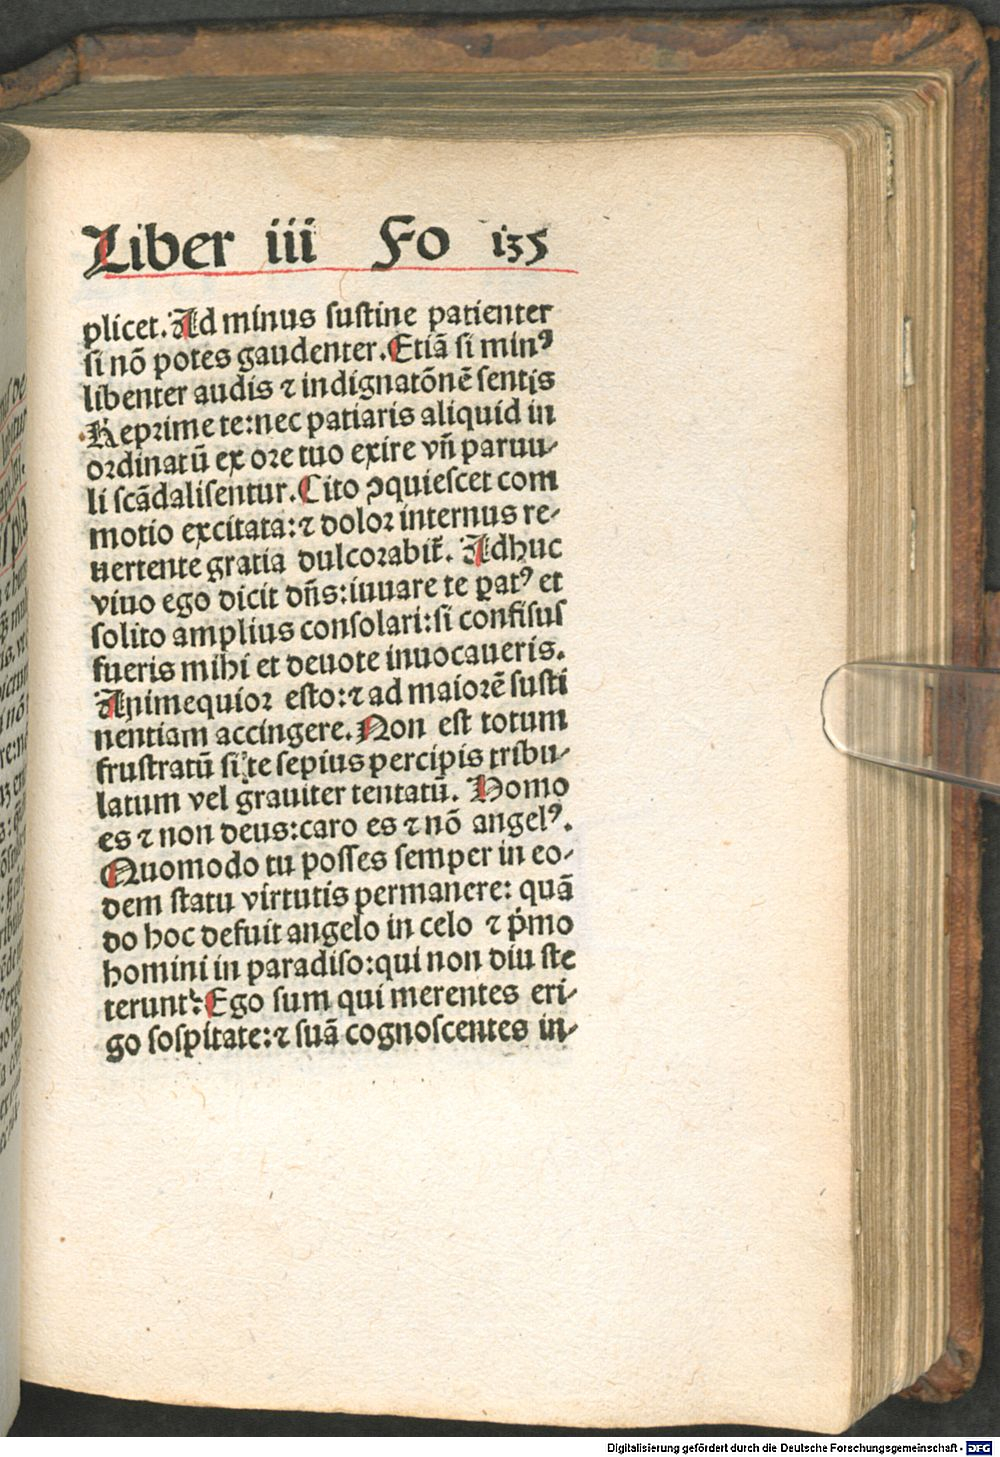 Liber iii Fo 135
plicet. Ad minus sustine patienter
si nō potes gaudenter. Etiā si minꝰ
libenter audis ⁊ indignatōnē sentis
Reprime te: nec patiaris aliquid in
ordinatū ex ore tuo exire vn̄ paruu-
li scādalisentur. Cito ꝯquiescet com
motio excitata: ⁊ dolor internus re-
uertente gratia dulcorabit̄. Adhuc
viuo ego dicit dn̄s: iuuare te ꝑatꝰ et
solito amplius consolari: si confisus
fueris mihi et deuote inuocaueris.
Animequior esto: ⁊ ad maiorē susti
nentiam accingere. Non est totum
frustratū si te sepius percipis tribu-
latum vel grauiter tentatū. Homo
es ⁊ non deus: caro es ⁊ nō angelꝰ.
Quomodo tu posses semper in eo-
dem statu virtutis permanere: quā
do hoc defuit angelo in celo ⁊ p̍mo
homini in paradiso: qui non diu ste
terunt: Ego sum qui merentes eri-
go sospitate: ⁊ suā cognoscentes in-
Digitalisierung gefördert durch die Deutsche Forschungsgemeinschaft - DFG